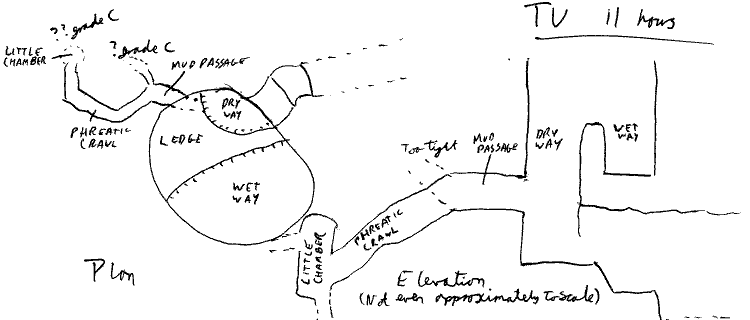 TU 11 hours
?? grade C
? grade C
LITTLE
CHAMBER
MUD PASSAGE
PHREATIC
CRAWL
DRY
WAY
LEDGE
WET
WAY
Plan
LITTLE CHAMBER
PHREATIC
CRAWL
Too tight
MUD
PASSAGE
DRY
WAY
WET
WAY
Elevation
(Not even approximately to scale)